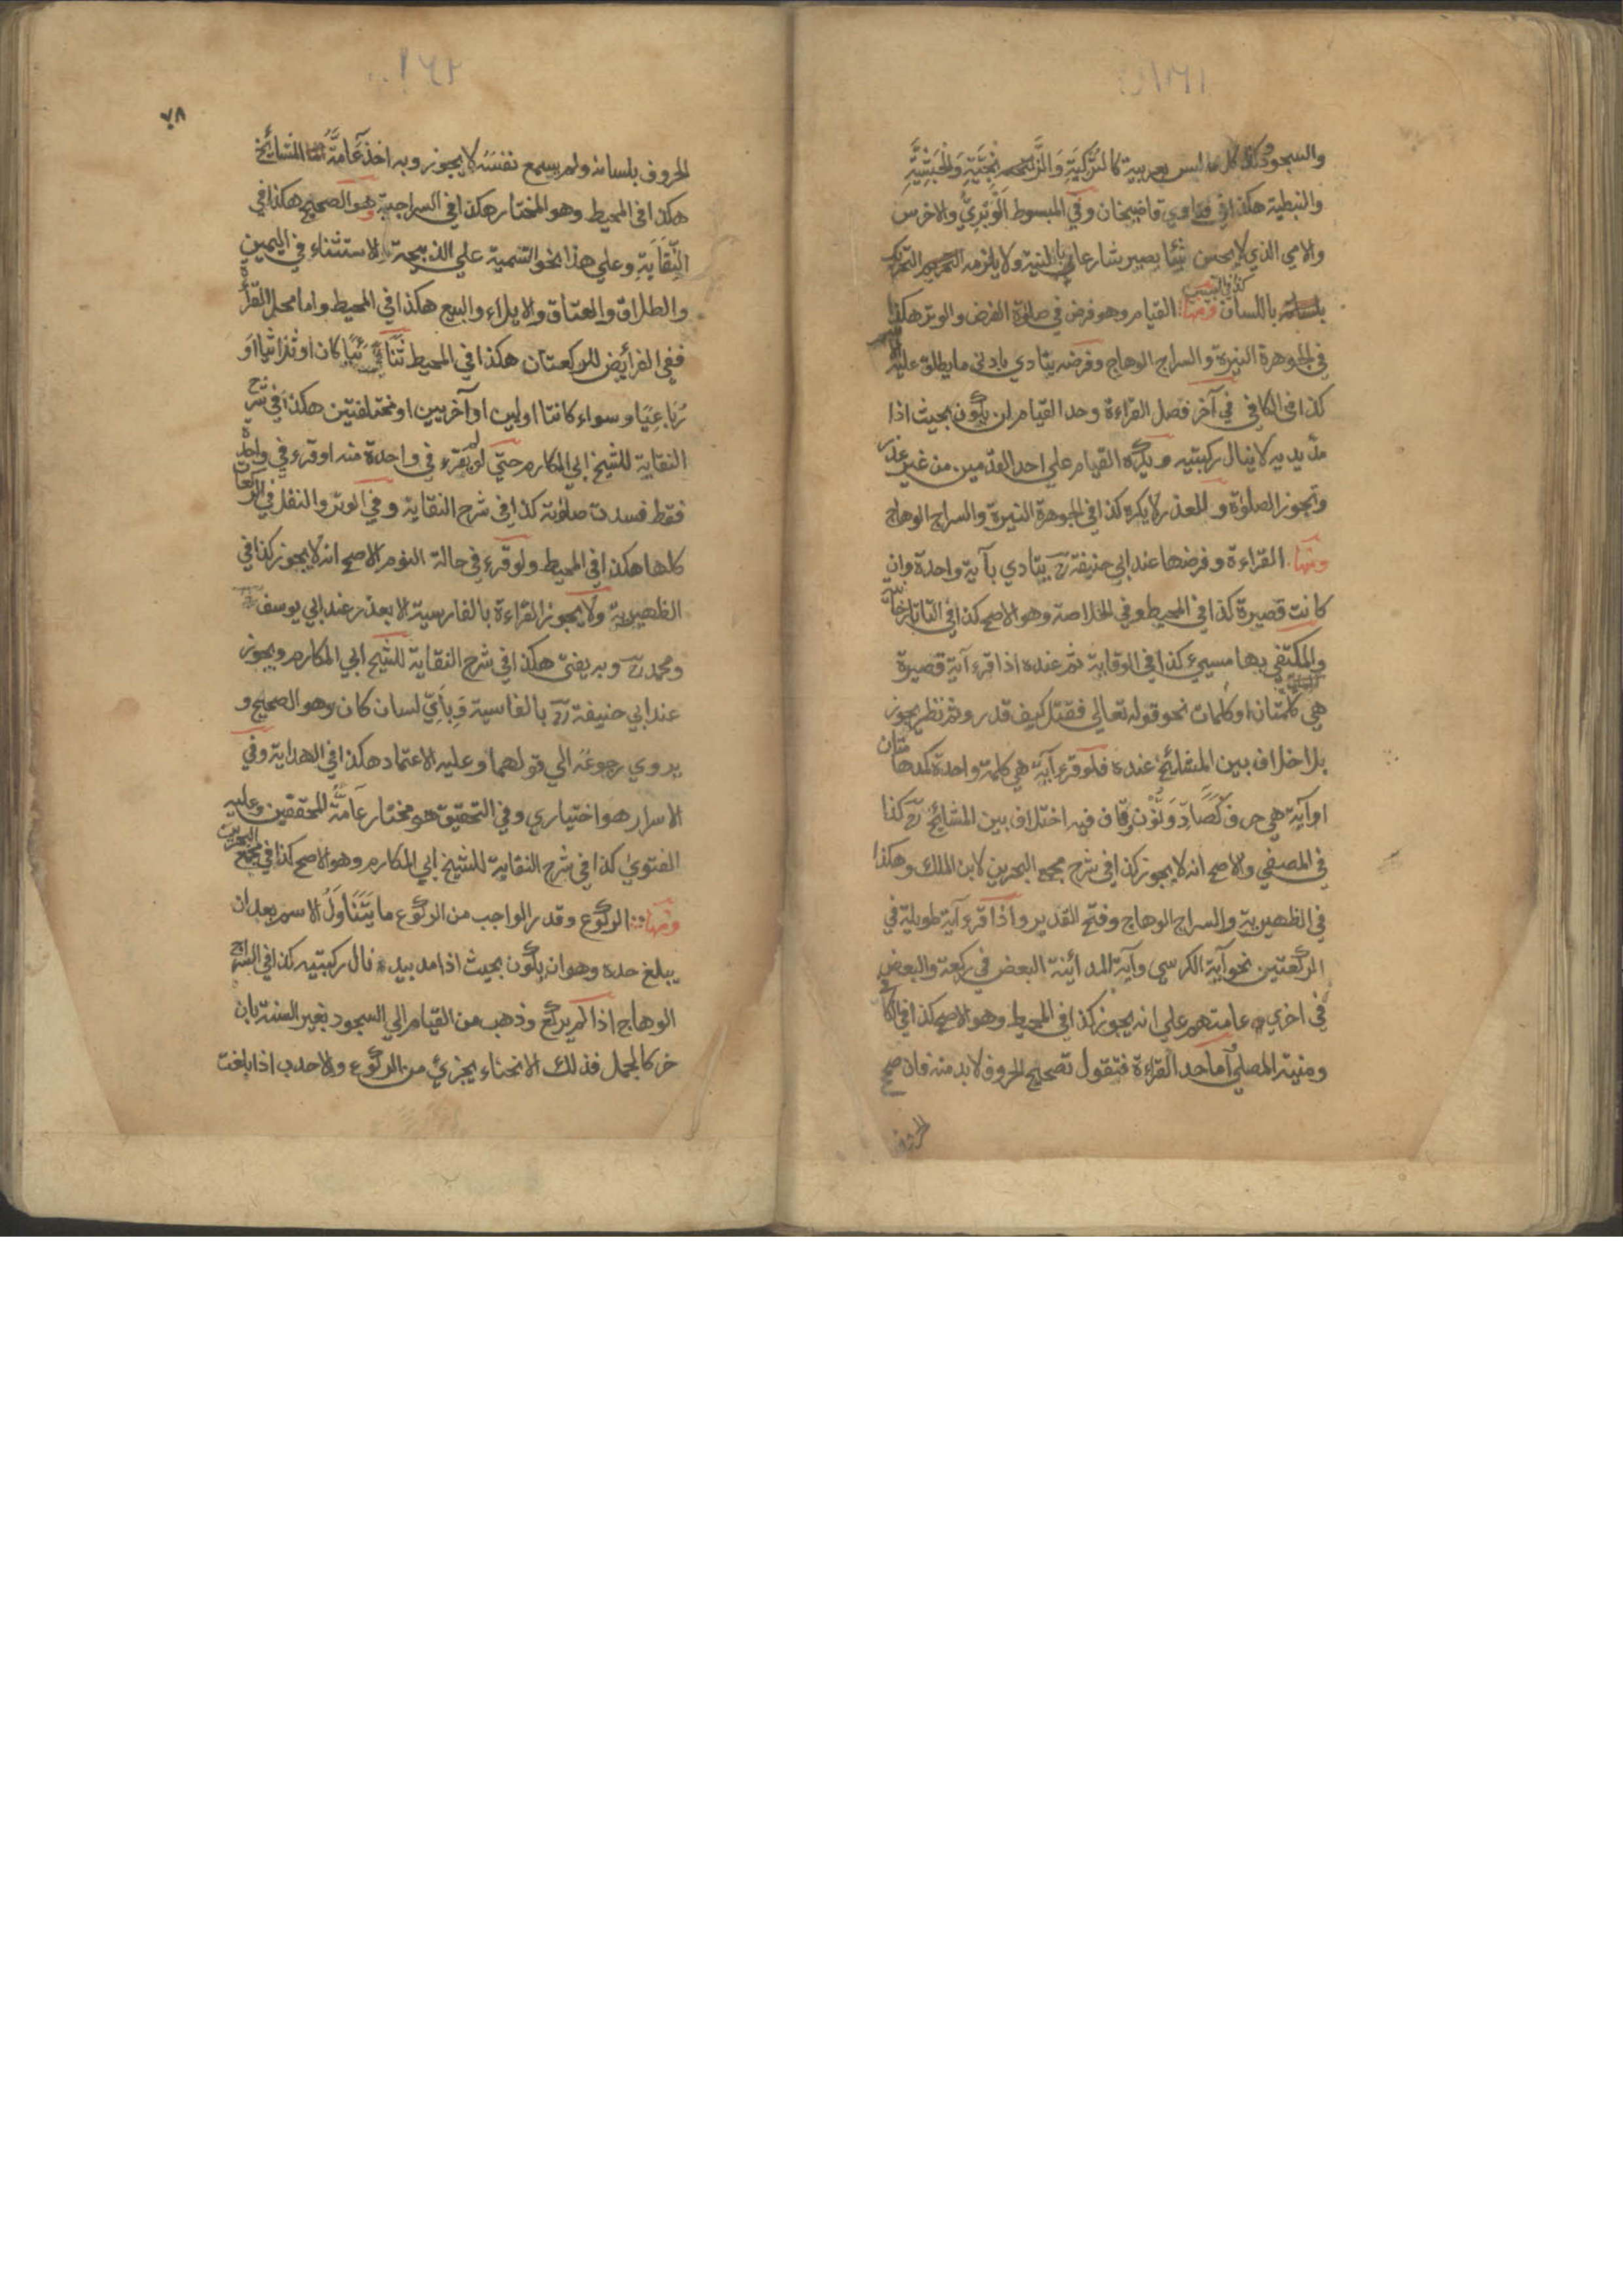 والسجود وكذلك كل ما ليس بعربية كالتركية والزنجية والحبشية
والنبطية هكذا في فتاوي قاضيخان وفي المبسوط الوبري والاخرس
والامي الذي لا يحسن شيئا يصير شارعا بالنية ولا يلزمه التحريك
باللسان كذا في التبيين ومنها القيام وهو فرض في صلوة الفرض والوتر هكذا
في الجوهرة النيرة والسراج الوهاج وفرضه يتادي بادني ما يطلق عليه الاسم
كذا في الكافي في آخر فصل القراءة وحد القيام ان يكون بحيث اذا
مد يديه لا ينال ركبتيه ويكره القيام علي احد القدمين من غير عذر
وتجوز الصلوة وللعذر لا يكره كذا في الجوهرة النيرة والسراج الوهاج
ومنها القراءة وفرضها عند ابي حنيفة رح يتادي بآية واحدة وان
كانت قصيرة كذا في المحيط وفي الخلاصة وهو الاصح كذا في التاتارخانية
والمكتفي بها مسيء كذا في الوقاية ثم عنده اذا قرء آية قصيرة
هي كلمتان او كلمات نحو قوله تعالي فقتل كيف قدر وثم نظر يجوز
بلا خلاف بين المشائخ عنده فلو قرء آية هي كلمة واحدة كمدهامتان
او آية هي حرف كصاد ونون وقاف فيه اختلاف بين المشائخ رح كذا
في المصفي والاصح انه لا يجوز كذا في شرح مجمع البحرين لابن الملك وهكذا
في الظهيرية والسراج الوهاج وفتح القدير واذا قرء آية طويلة في
الركعتين نحو آية الكرسي وآية المدائنة البعض في ركعة والبعض
في اخري عامتهم علي انه يجوز كذا في المحيط وهو الاصح كذا في الكافي
ومنية المصلي اما حد القراءة فنقول تصحيح الحروف لا بد منه فان صح
الحروف
٧٨
الحروف بلسانه ولم يسمع نفسه لا يجوز وبه اخذ عامة المشائخ
هكذا في المحيط وهو المختار هكذا في السراجية وهو الصحيح هكذا في
النقاية وعلي هذا نحو التسمية علي الذبيحة والاستثناء في اليمين
والطلاق والعتاق والايلاء والبيع هكذا في المحيط واما محل القراءة
ففي الفرائض للركعتان هكذا في المحيط ثنائيا كان او ثلاثيا او
رباعيا وسواء كانتا اوليين او آخريين او مختلفتين هكذا في شرح
النقاية للشيخ ابي المكارم حتي لو لم يقرء في واحدة منه او قرء في واحدة
فقط فسدت صلوته كذا في شرح النقاية وفي الوتر والنفل في الركعات
كلها هكذا في المحيط ولو قرء في حالة النوم الاصح انه لا يجوز كذا في
الظهيرية ولا يجوز القراءة بالفارسية الا بعذر عند ابي يوسف
ومحمد رح وبه يفتي هكذا في شرح النقاية للشيخ ابي المكارم ويجوز
عند ابي حنيفة رح بالفاسية وبأي لسان كان وهو الصحيح و
يروي رجوعه الي قولهما وعليه الاعتماد هكذا في الهداية وفي
الاسرار هو اختياري وفي التحقيق هو مختار عامة المحققين وعليه
الفتوي كذا في شرح النقاية للشيخ ابي المكارم وهو الاصح كذا في مجمع البحرين
ومنها الركوع وقدر الواجب من الركوع ما يتناول الاسم بعد ان
يبلغ حده وهو ان يكون بحيث اذا مد يديه نال ركبتيه كذا في السراج
الوهاج اذا لم يركع وذهب من القيام الي السجود بغير السنة بان
خر كالجمل فذلك الانحناء يجزئ من الركوع والاحدب اذا بلغت